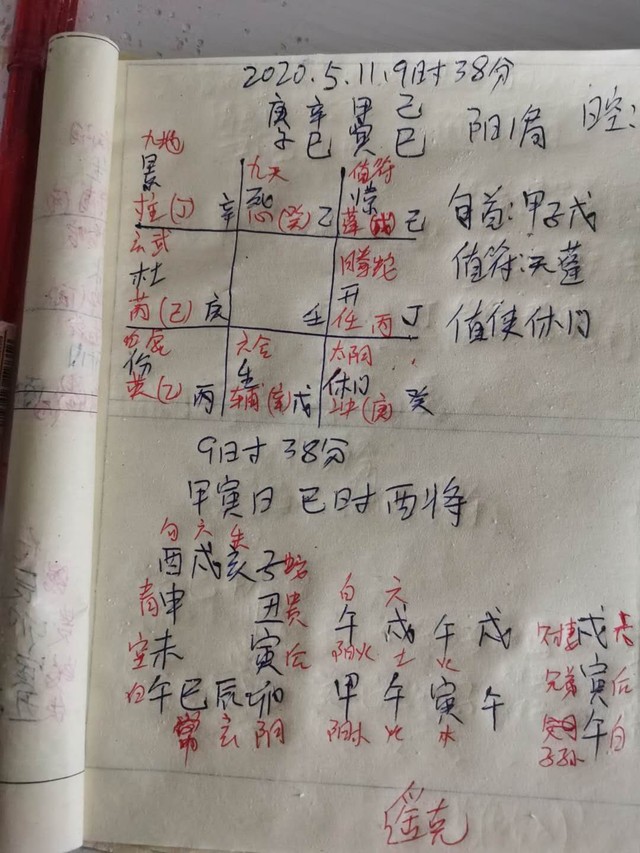 2020.5.11.9时38分
庚 辛 甲 己
子 巳 寅 巳 阳1局 日空:
九地 九天 值符
景 死 惊
柱(丁) 辛 心(癸) 乙 蓬(戊) 己
旬首:甲子戊
玄武 腾蛇
杜 开
芮(己) 庚 壬 任 丙 丁
值符:天蓬
值使休门
六合 太阴
生 休门
英(乙) 丙 辅(辛) 戊 冲(庚) 癸
9时38分
甲寅日 巳时 酉将
勾 六 朱
酉 戌 亥 子 蛇
青 申 丑 贵
空 未 寅 后
白 午 巳 辰 卯
常 玄 阴
白 六
午 戌 午 戌
阳火 土 火
甲 午 寅 午
阳木 火 木
戌 六
兄弟 寅 后
子孙 午 白
遥克